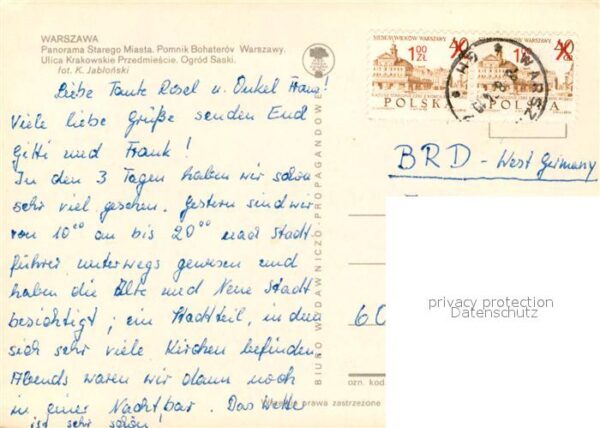 WARSZAWA
Panorama Starego Miasta. Pomnik Bohaterów Warszawy.
Ulica Krakowskie Przedmieście. Ogród Saski.
fot. K. Jabłoński
Liebe Tante Rosel u. Onkel Franz!
Viele liebe Grüße senden Euch
Gitti und Frank!
In den 3 Tagen haben wir schon
sehr viel gesehen. Gestern sind wir
von 10⁰⁰ an bis 20⁰⁰ nach Stadt-
führer unterwegs gewesen und
haben die Alte und Neue Stadt
besichtigt; ein Stadtteil, in dem
sich sehr viele Kirchen befinden.
Abends waren wir dann noch
in einer Nachtbar. Das Wetter
ist sehr schön!
BIURO WYDAWNICZO-PROPAGANDOWE
SIEDEM WIEKÓW WARSZAWY
1 00 ZŁ
40
POLSKA
SIEDEM WIEKÓW WARSZAWY
40
POLSKA
WARSZ
BRD - West Germany
60
ozn. kod.
prawa zastrzeżone
privacy protection
Datenschutz